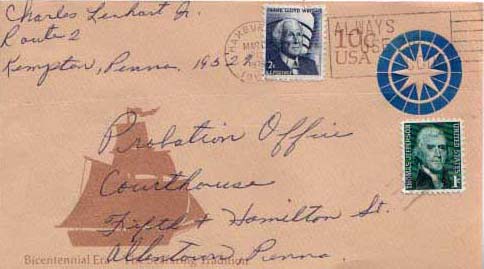 Charles Lenhart Jr.
Route 2
Kempton, Penna. 1952
FRANK LLOYD WRIGHT
2¢ U.S. POSTAGE
ALWAYS
USE
10c
USA
Probation Office
Courthouse
Fifth & Hamilton St.
Allentown Penna.
THOMAS JEFFERSON
UNITED STATES
1c
Bicentennial Era The Seafaring Tradition